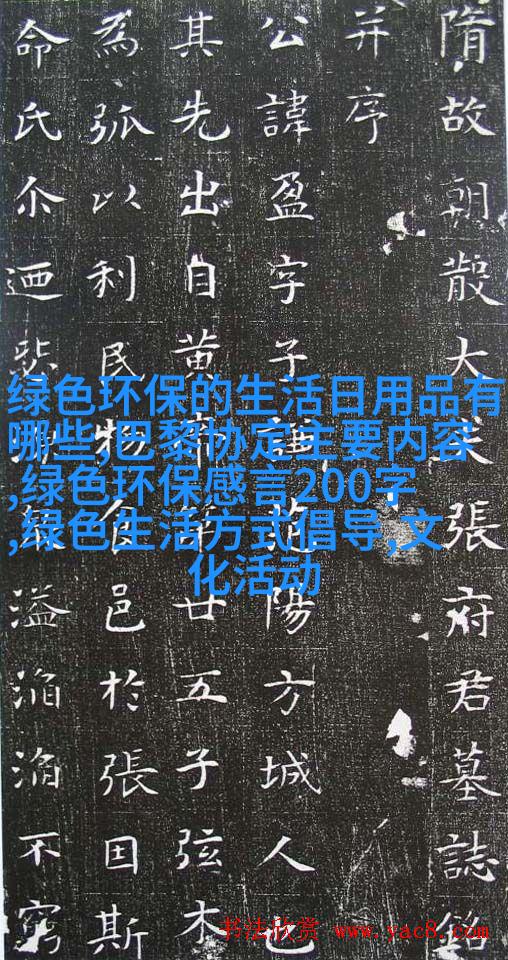 隋故朝散大夫張府君墓誌銘
并序
公諱盈字子陽方城人也
其先出自黃帝第廿五子弦木
為弧以利民物食邑於張因斯
命氏尒迺溢滔滔不窮
绿色环保的生活日用品有
哪些,巴黎协定主要内容
,绿色环保感言200字
,绿色生活方式倡导,文
化活动
书法欣赏 www.yac8.com